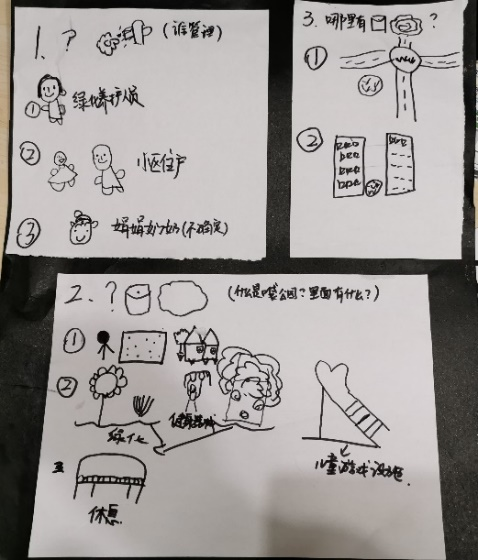 1. ? (谁管理)
① 绿化养护人员
② 小区住户
③ 娟娟奶奶(不确定)
3. 哪里有 ?
①
②
2. ? (什么是口袋公园?里面有什么?)
①
②
绿化
健身器械
儿童游戏设施
3
休息